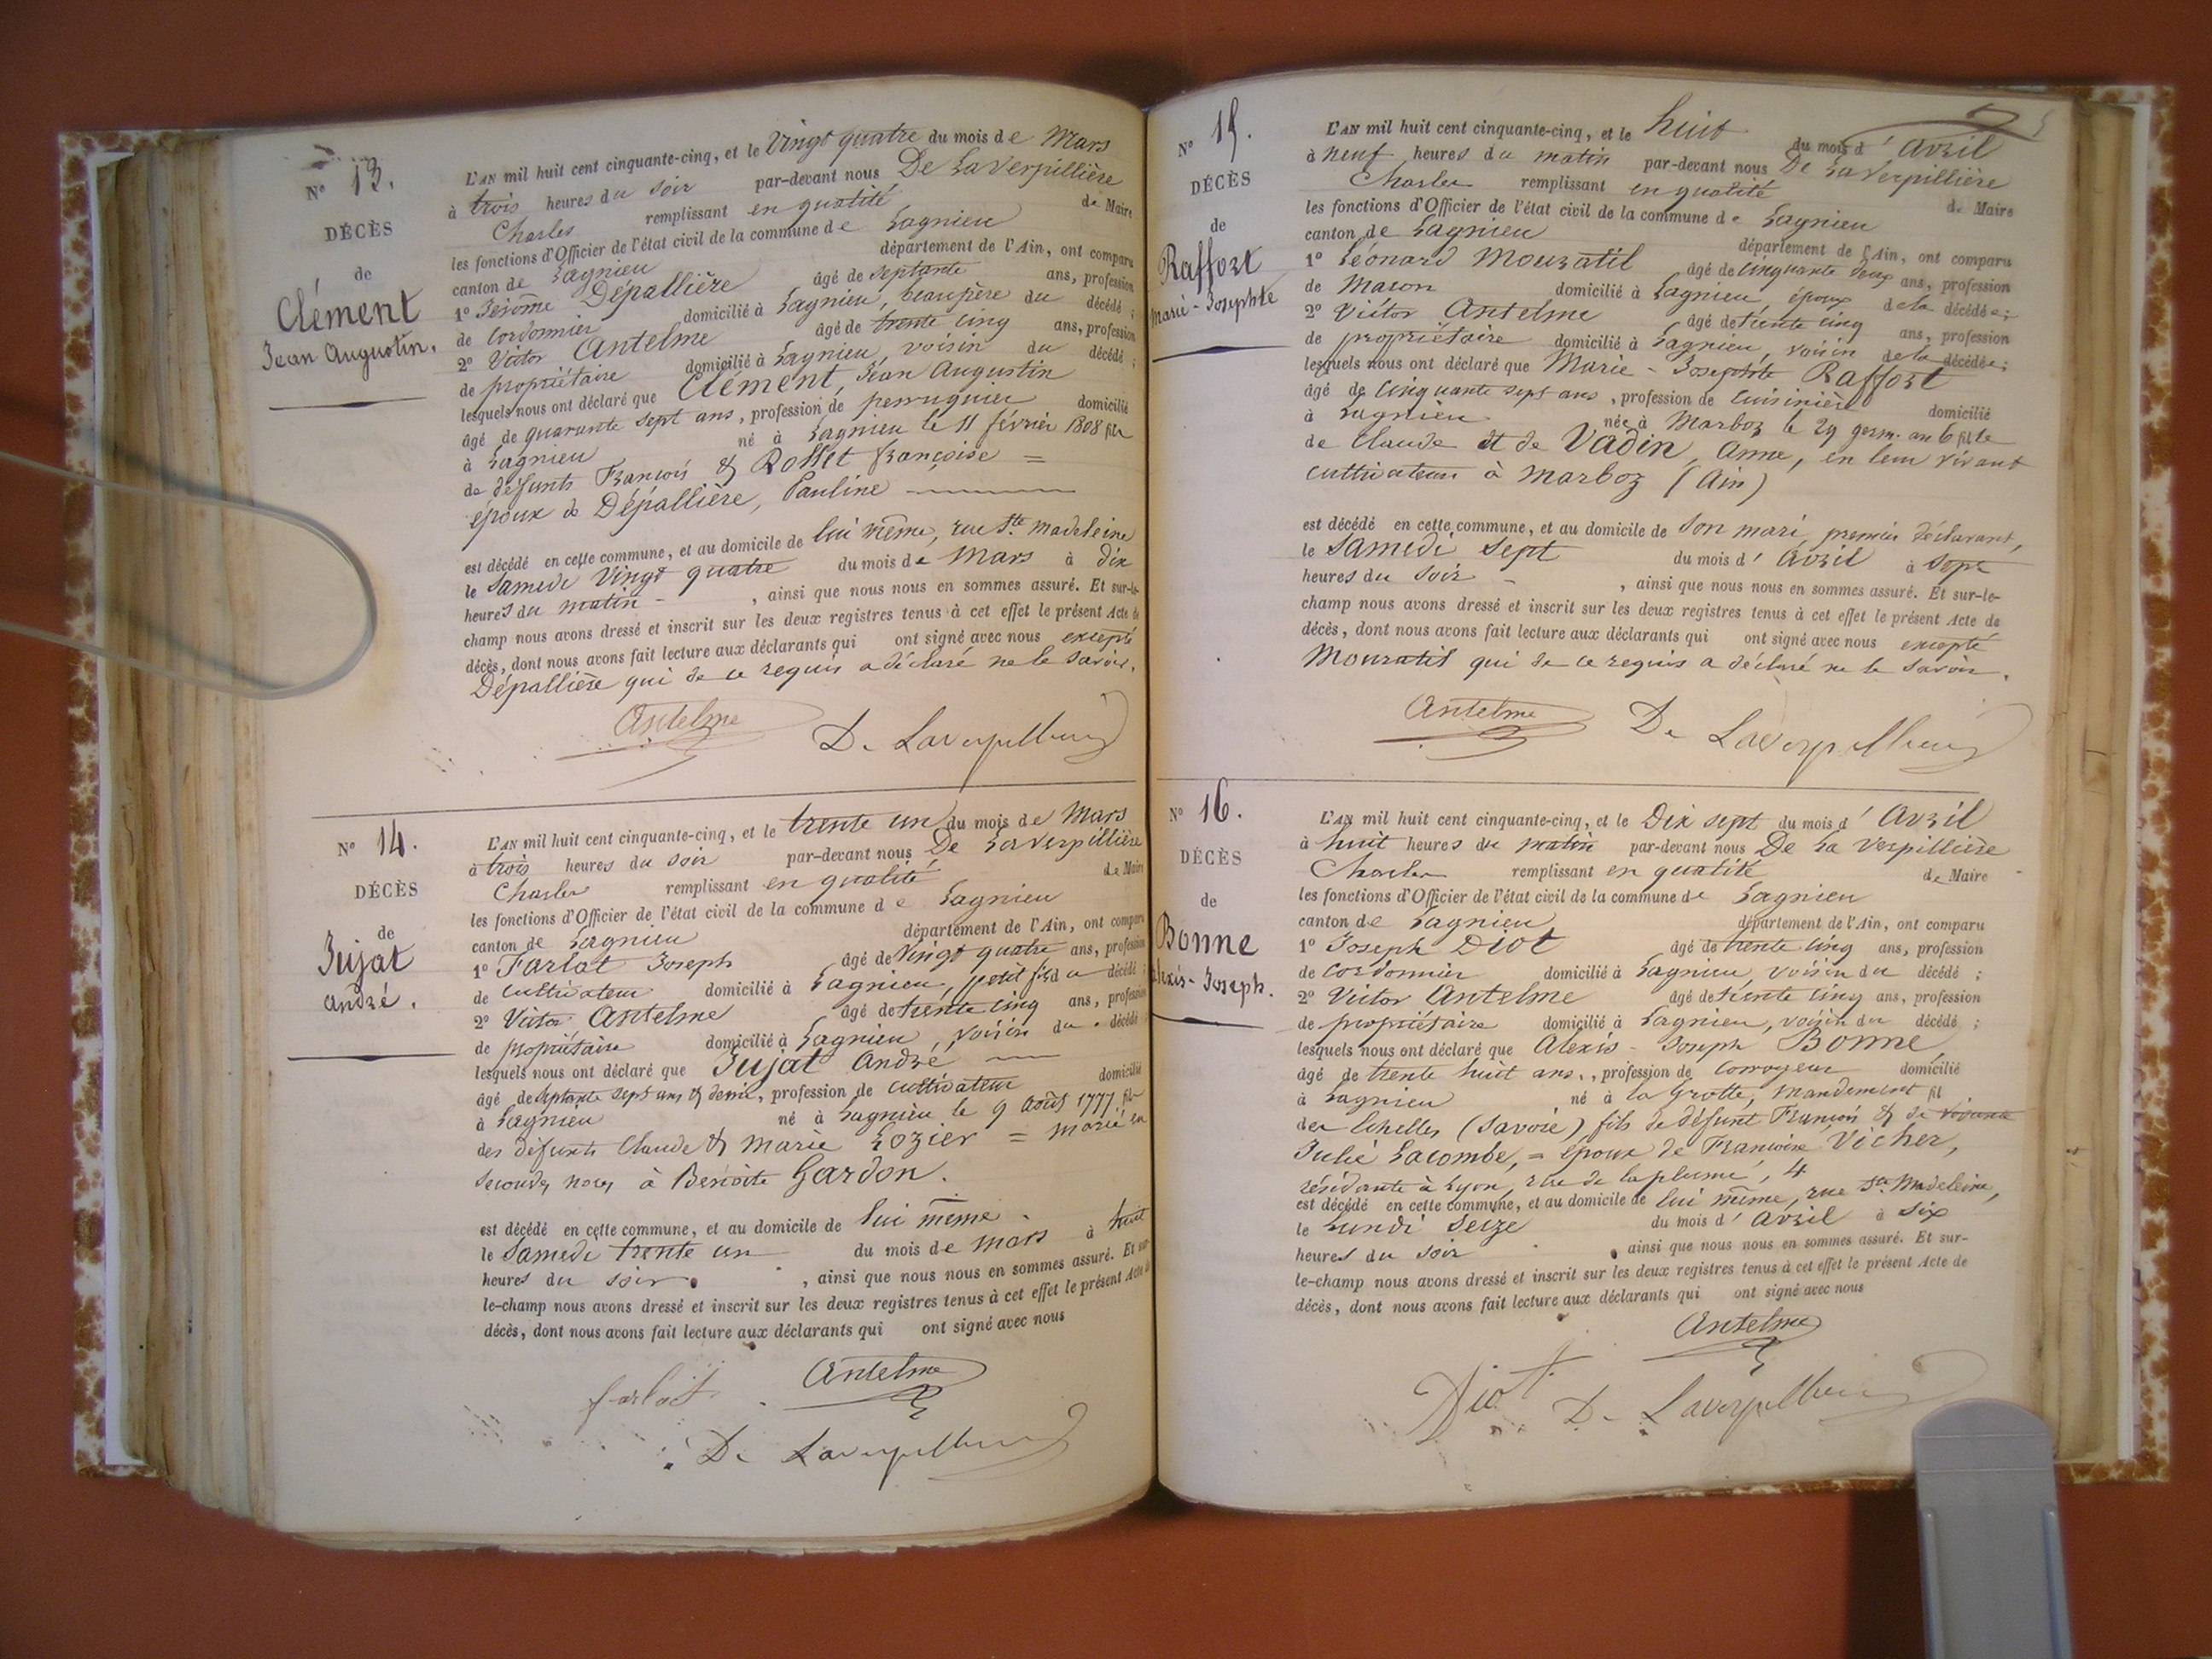 N° 13.
DÉCÈS
de
Clément
Jean Augustin.
L'AN mil huit cent cinquante-cinq, et le Vingt quatre du mois de Mars
à trois heures du soir par-devant nous De LaVerpillière
Charles remplissant en qualité de Maire
les fonctions d'Officier de l'état civil de la commune de Lagnieu
canton de Lagnieu département de l'Ain, ont comparu
1° Jérôme Dépallière âgé de septante ans, profession
de cordonnier domicilié à Lagnieu, beaupère du décédé ;
2° Victor Antelme âgé de trente cinq ans, profession
de propriétaire domicilié à Lagnieu, voisin du décédé ;
lesquels nous ont déclaré que Clément, Jean Augustin
âgé de quarante sept ans, profession de perruquier domicilié
à Lagnieu né à Lagnieu le 11 février 1808 fils
de défunts François & Rosset françoise =
époux de Dépallière, Pauline
est décédé en cette commune, et au domicile de lui même, rue Ste Madeleine
le Samedi Vingt quatre du mois de Mars à dix
heures du matin - , ainsi que nous nous en sommes assuré. Et sur-le-
champ nous avons dressé et inscrit sur les deux registres tenus à cet effet le présent Acte de
décès, dont nous avons fait lecture aux déclarants qui ont signé avec nous excepté
Dépallière qui de ce requis a déclaré ne le savoir.
Antelme D. Laverpillière
N° 14.
DÉCÈS
de
Jujat
André.
L'AN mil huit cent cinquante-cinq, et le trente un du mois de Mars
à trois heures du soir par-devant nous De LaVerpillière
Charles remplissant en qualité de Maire
les fonctions d'Officier de l'état civil de la commune de Lagnieu
canton de Lagnieu département de l'Ain, ont comparu
1° Farlat Joseph âgé de Vingt quatre ans, profession
de cultivateur domicilié à Lagnieu, petit fils du décédé ;
2° Victor Antelme âgé de trente cinq ans, profession
de propriétaire domicilié à Lagnieu, voisin du décédé
lesquels nous ont déclaré que Jujat André
âgé de septante sept ans & demi, profession de cultivateur domicilié
à Lagnieu né à Lagnieu le 9 Août 1777 fils
des défunts Claude & Marie Lozier = marié en
secondes noces à Benoite Gardon.
est décédé en cette commune, et au domicile de lui même.
le Samedi trente un du mois de Mars à huit
heures du soir , ainsi que nous nous en sommes assuré. Et sur-
le-champ nous avons dressé et inscrit sur les deux registres tenus à cet effet le présent Acte de
décès, dont nous avons fait lecture aux déclarants qui ont signé avec nous
farlat. Antelme
D. Laverpillière
N° 15.
DÉCÈS
de
Raffort
Marie-Josephte
L'AN mil huit cent cinquante-cinq, et le huit du mois d'Avril
à neuf heures du matin par-devant nous De LaVerpillière
Charles remplissant en qualité de Maire
les fonctions d'Officier de l'état civil de la commune de Lagnieu
canton de Lagnieu département de l'Ain, ont comparu
1° Léonard Mouratil âgé de cinquante deux ans, profession
de Macon domicilié à Lagnieu, époux de la décédée ;
2° Victor Antelme âgé de trente cinq ans, profession
de propriétaire domicilié à Lagnieu, voisin de la décédée ;
lesquels nous ont déclaré que Marie-Josephte Raffort
âgé de cinquante sept ans, profession de cuisinière domicilié
à Lagnieu née à Marboz le 29 germ. an 6 fille
de Claude et de Vadin, Anne, en leur vivant
cultivateurs à Marboz (Ain)
est décédé en cette commune, et au domicile de son mari, premier déclarant,
le Samedi sept du mois d'Avril à sept
heures du soir - , ainsi que nous nous en sommes assuré. Et sur-le-
champ nous avons dressé et inscrit sur les deux registres tenus à cet effet le présent Acte de
décès, dont nous avons fait lecture aux déclarants qui ont signé avec nous excepté
Mouratil qui de ce requis a déclaré ne le savoir.
Antelme D. Laverpillière
N° 16.
DÉCÈS
de
Bonne
Alexis-Joseph.
L'AN mil huit cent cinquante-cinq, et le Dix sept du mois d'Avril
à huit heures du matin par-devant nous De La Verpillière
Charles remplissant en qualité de Maire
les fonctions d'Officier de l'état civil de la commune de Lagnieu
canton de Lagnieu département de l'Ain, ont comparu
1° Joseph Diot âgé de trente cinq ans, profession
de cordonnier domicilié à Lagnieu, voisin du décédé ;
2° Victor Antelme âgé de trente cinq ans, profession
de propriétaire domicilié à Lagnieu, voisin du décédé ;
lesquels nous ont déclaré que Alexis-Joseph Bonne,
âgé de trente huit ans., profession de corroyeur domicilié
à Lagnieu né à la Grotte, mandement fil
des Echelles (Savoie) fils de défunt François & de vivante
Julie Lacombe, = époux de Françoise Vicher,
résidante à Lyon, rue de la plume, 4
est décédé en cette commune, et au domicile de lui même, rue Ste Madeleine,
le Lundi Seize du mois d'Avril à six
heures du soir , ainsi que nous nous en sommes assuré. Et sur-
le-champ nous avons dressé et inscrit sur les deux registres tenus à cet effet le présent Acte de
décès, dont nous avons fait lecture aux déclarants qui ont signé avec nous
Antelme
Diot. D. Laverpillière